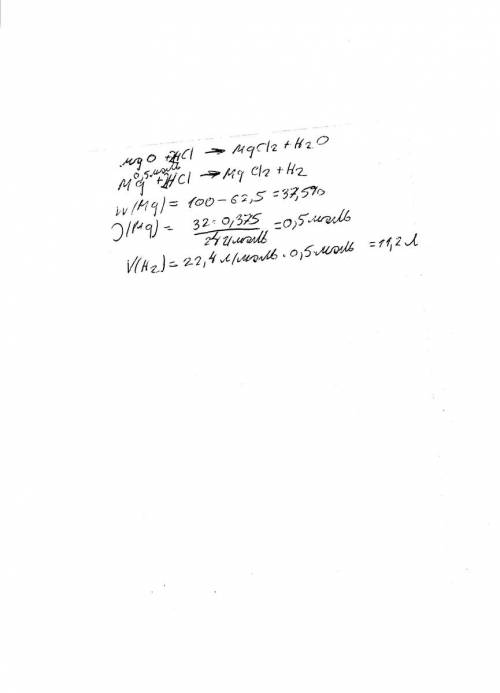 MgO + 2HCl → MgCl2 + H2O
0,5 моль
Mg + 2HCl → MgCl2 + H2
W(Mg) = 100 - 62,5 = 37,5%
ν(Mg) = 32 · 0,375 / 24 г/моль = 0,5 моль
V(H2) = 22,4 л/моль · 0,5 моль = 11,2 л